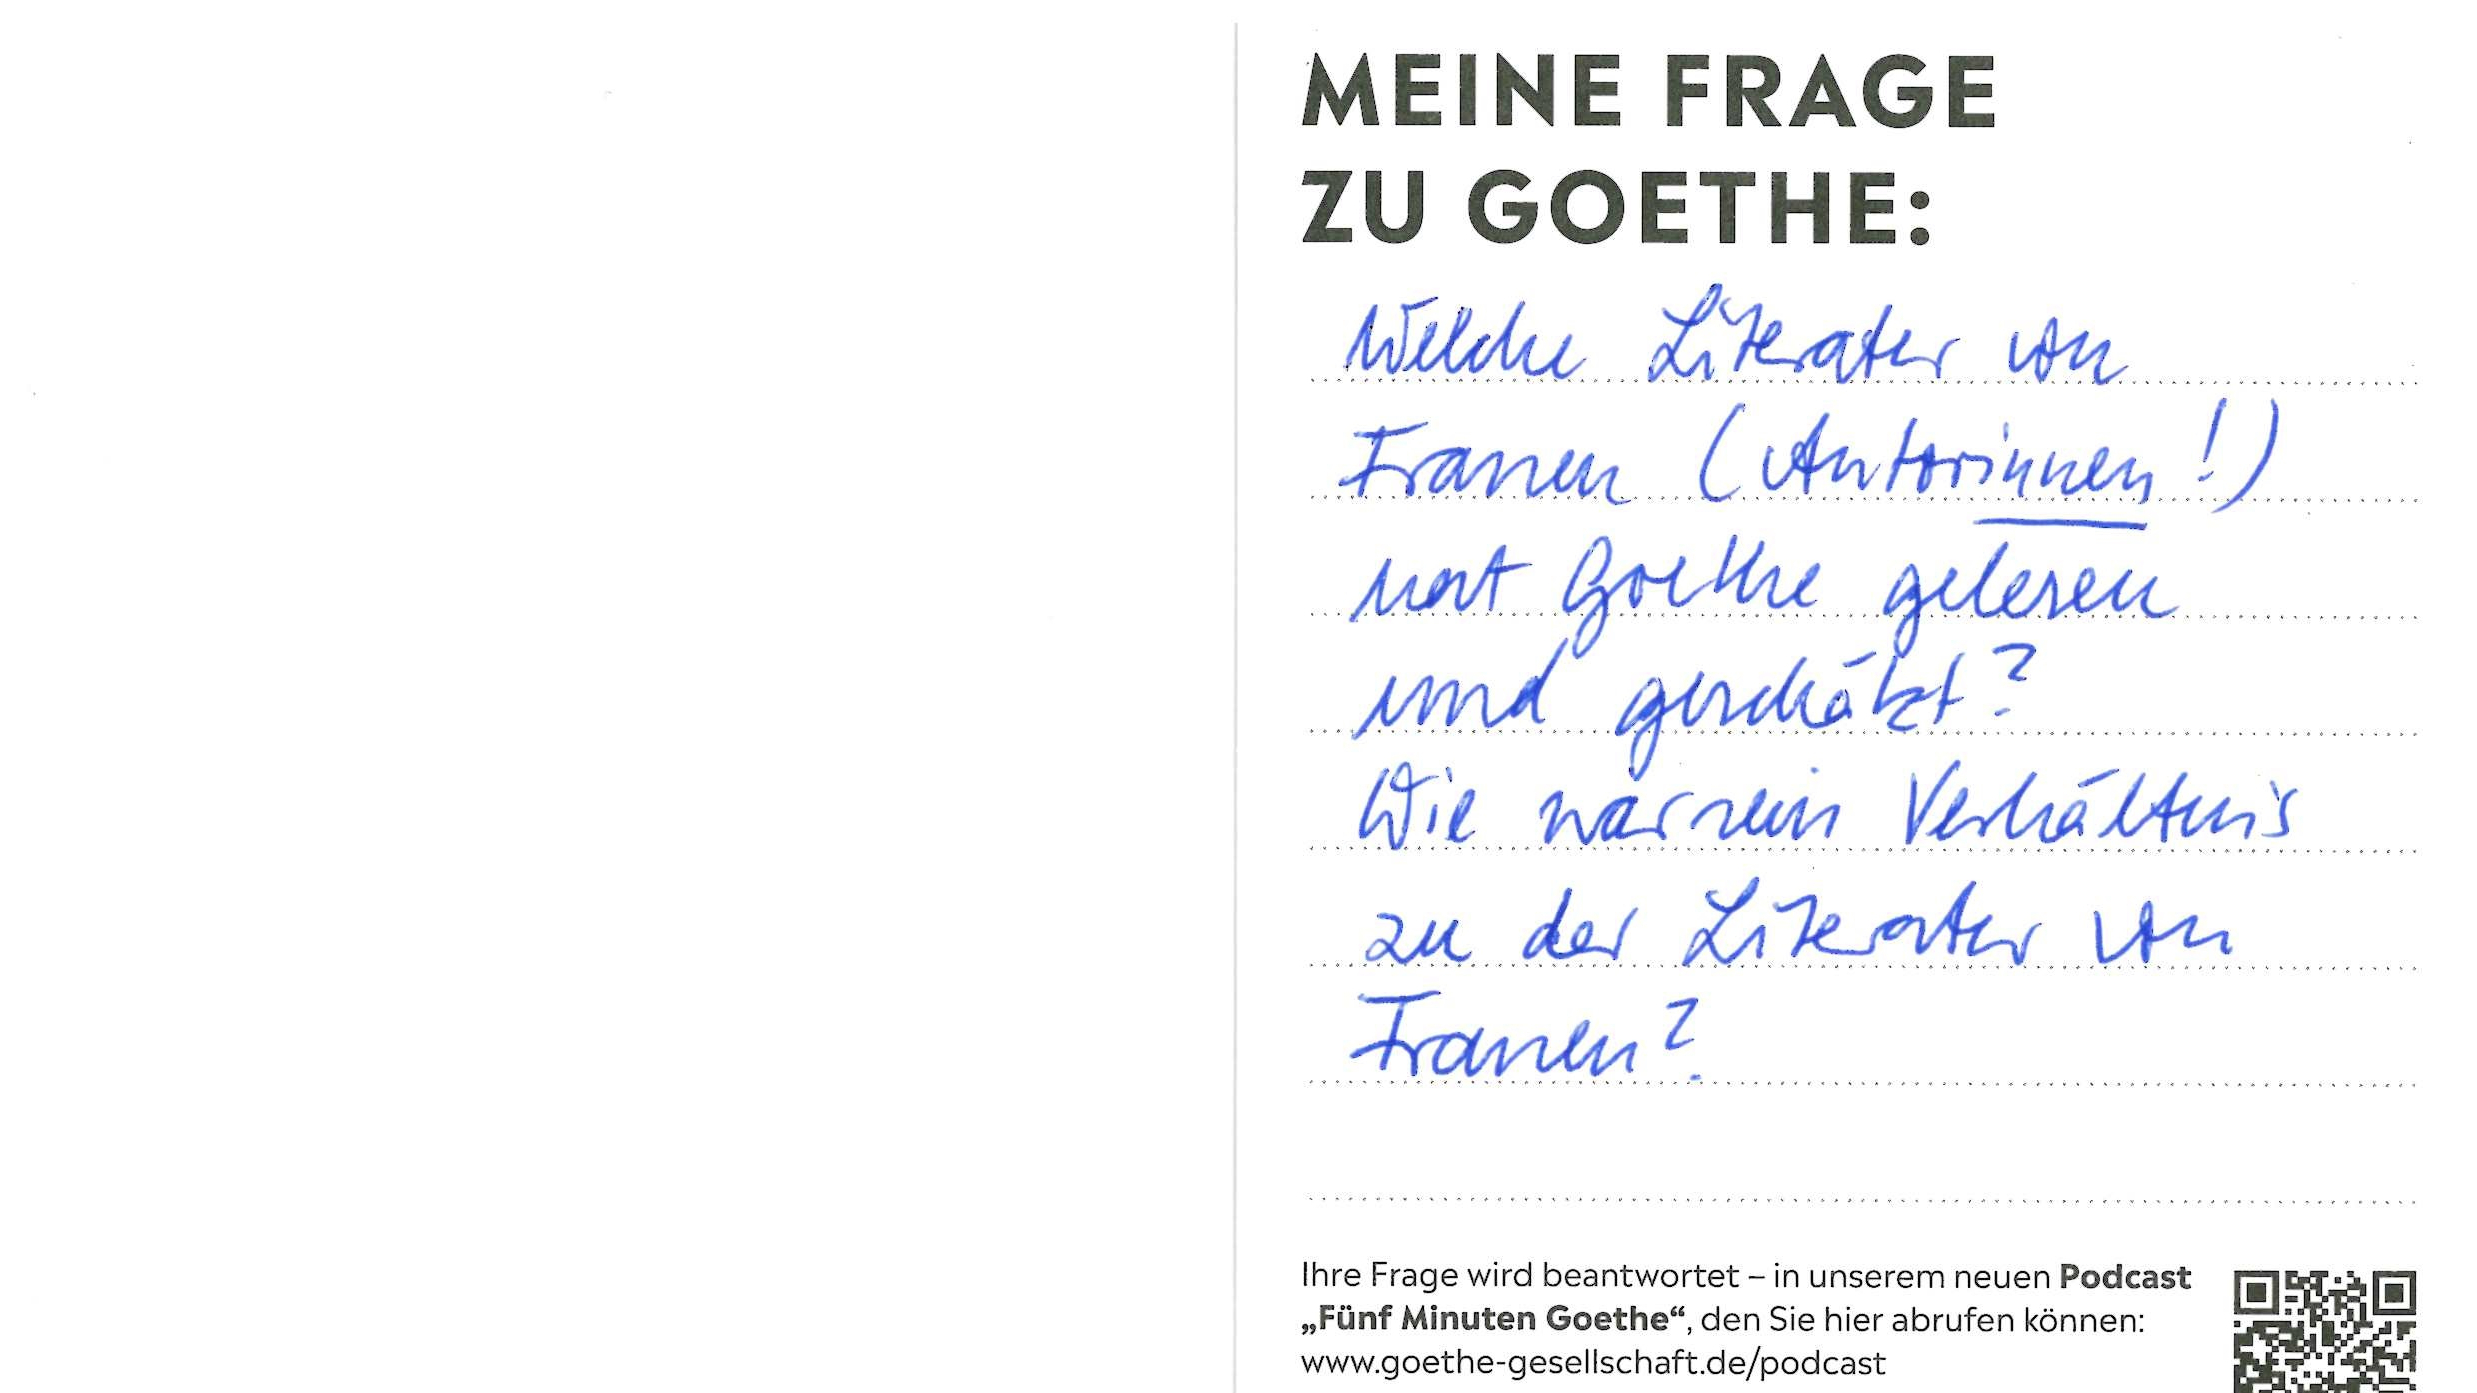 MEINE FRAGE
ZU GOETHE:
Welche Literatur von
Frauen (Autorinnen!)
hat Goethe gelesen
und geschätzt?
Wie war sein Verhältnis
zu der Literatur von
Frauen?
Ihre Frage wird beantwortet – in unserem neuen Podcast
„Fünf Minuten Goethe“, den Sie hier abrufen können:
www.goethe-gesellschaft.de/podcast